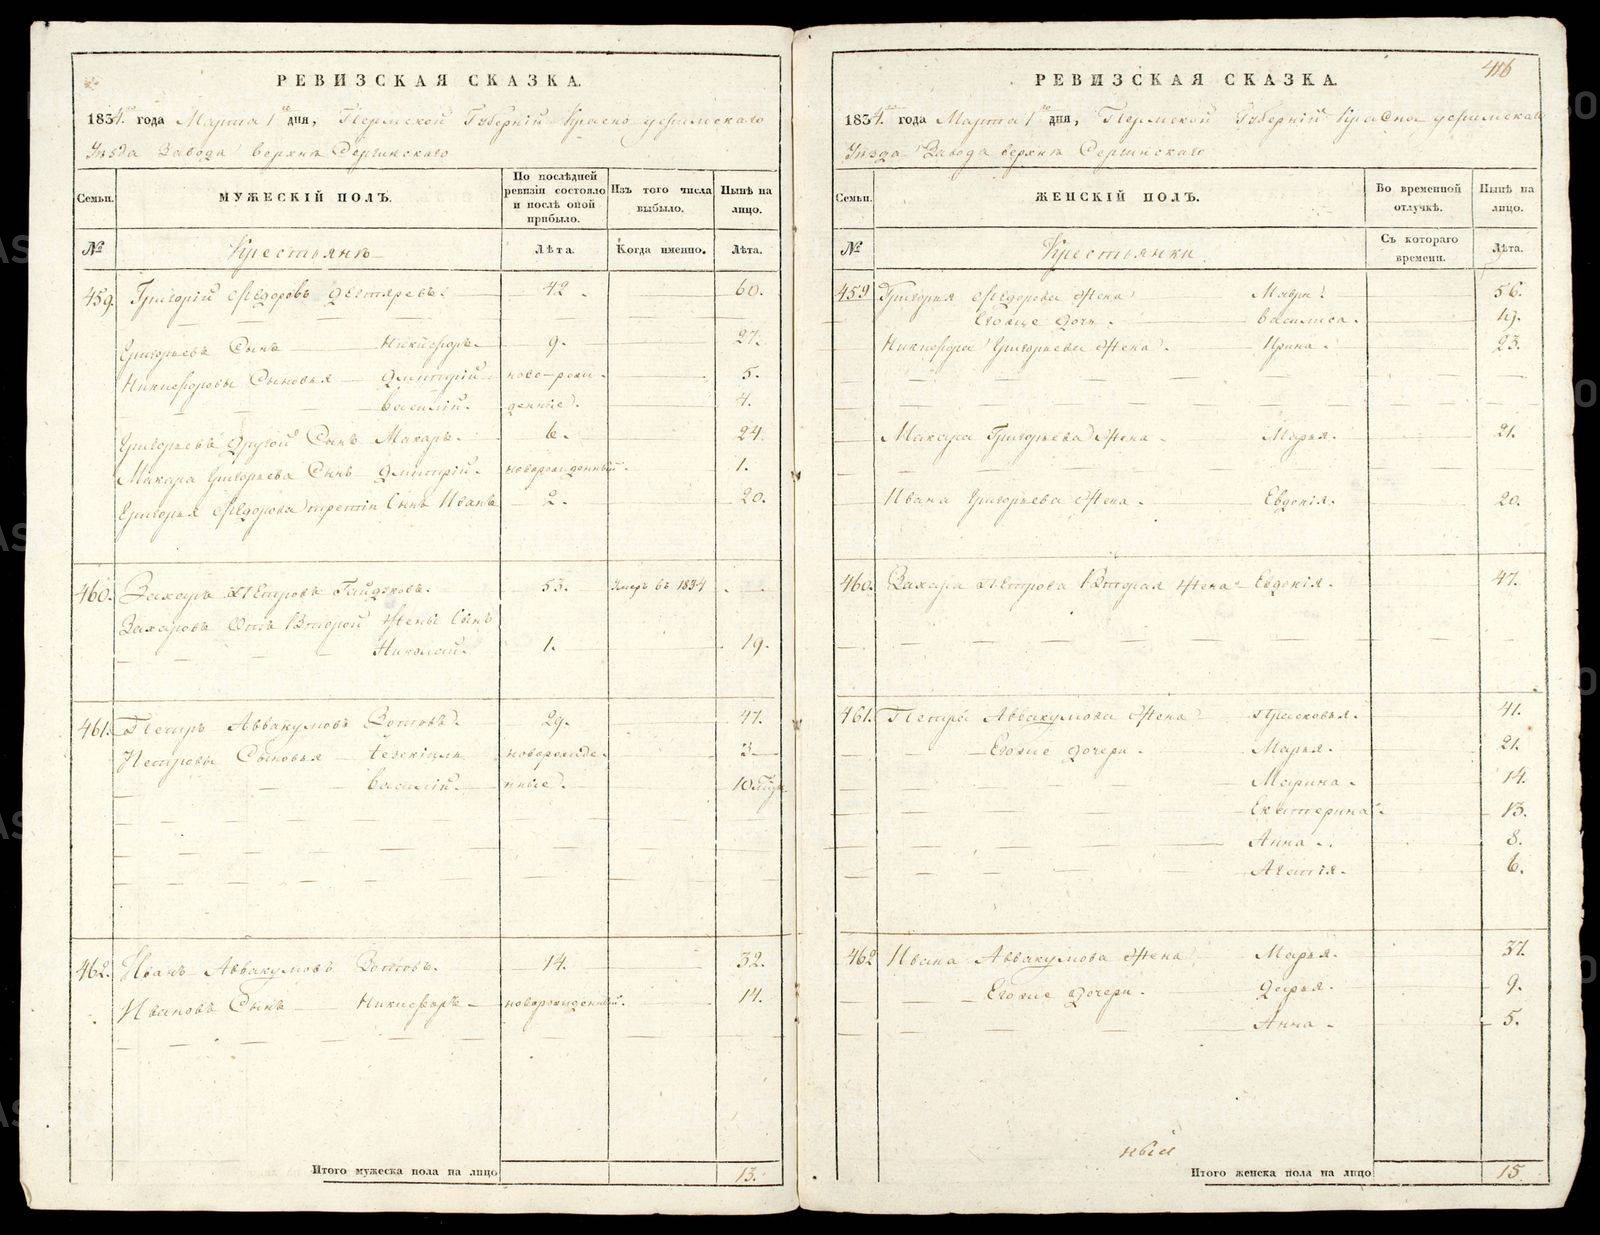 РЕВИЗСКАЯ СКАЗКА.
1834. года Марта 1 дня, Пермской Губернїи Красно уфимскаго
Уѣзда Завода верхне Сергинскаго
Семьи. МУЖЕСКІЙ ПОЛЪ. По послѣдней ревизіи состояло и послѣ оной прибыло. Изъ того числа выбыло. Нынѣ на лицо.
№ Крестьянѣ Лѣта. Когда именно. Лѣта.
459. Григорїй Ѳедоровъ 42. 60.
Григорьевъ Сынъ Никифоръ 9. 27.
Никифоровы Сыновья Дмитрїй ново-рож- 5.
Василїй. денные. 4.
Григорьевъ другой Сынъ Макаръ. 6. 24.
Макара Григорьева Сынъ Дмитрїй. новорожденный. 1.
Григорья Ѳедорова третїй Сынъ Иванъ 2. 20.
460. Захаръ Петровъ 53. Умеръ въ 1834
Захаровъ Отъ Второй Жены Сынъ
Николай. 1. 19.
461. Петръ Аввакумовъ Зотовъ. 29. 47.
Петровы Сыновья Іезекїиль новорожде- 3
Василїй. нные. 10
462. Иванъ Аввакумовъ Зотовъ. 14. 32.
Ивановъ Сынъ Никифоръ новорожденный. 14.
Итого мужеска пола на лицо 13.
416
РЕВИЗСКАЯ СКАЗКА.
1834. года Марта 1 дня, Пермской Губернїи Красно уфимскаго
Уѣзда Завода верхне Сергинскаго
Семьи. ЖЕНСКІЙ ПОЛЪ. Во временной отлучкѣ. Нынѣ на лицо.
№ Крестьянки Съ котораго времени. Лѣта.
459 Григорья Ѳедорова Жена Мавра. 56.
Егоже дочь. Василиса. 19.
Никифора Григорьева Жена. Ирина. 23.
Макара Григорьева Жена. Марья. 21.
Ивана Григорьева Жена. Евдокїя. 20.
460. Захара Петрова Вторая Жена Евдокїя. 47.
461. Петра Аввакумова Жена Прасковья. 41.
Егоже дочери. Марья. 21.
Марина. 14.
Екатерина. 13.
Анна. 8.
6.
462 Ивана Аввакумова Жена Марья. 37.
Егоже дочери. Дарья. 9.
Анна 5.
ный
Итого женска пола на лицо 15.